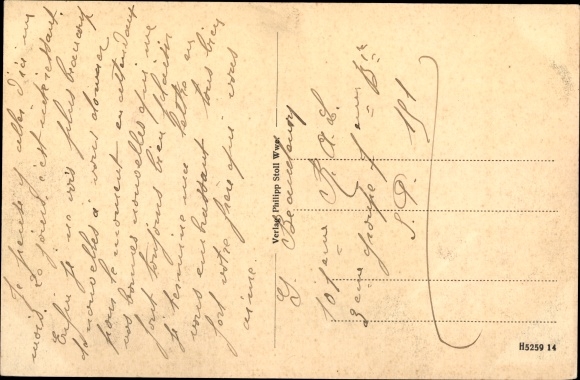 Je pense y aller d'ici un
mois. Ce jour, c'est intéressant
Enfin je ne vois plus beaucoup
de nouvelles à vous donner
pour le moment en attendant
vos bonnes nouvelles qui me
font toujours bien plaisir
je termine ma lettre en
vous embrassant tous bien
fort votre frère qui vous
aime.
Verlag Philipp Stoll Wwe.
G. Beaudoury
101 eme R. A. L.
2eme groupe 4 eme Bie
S. P. 181
H5259 14